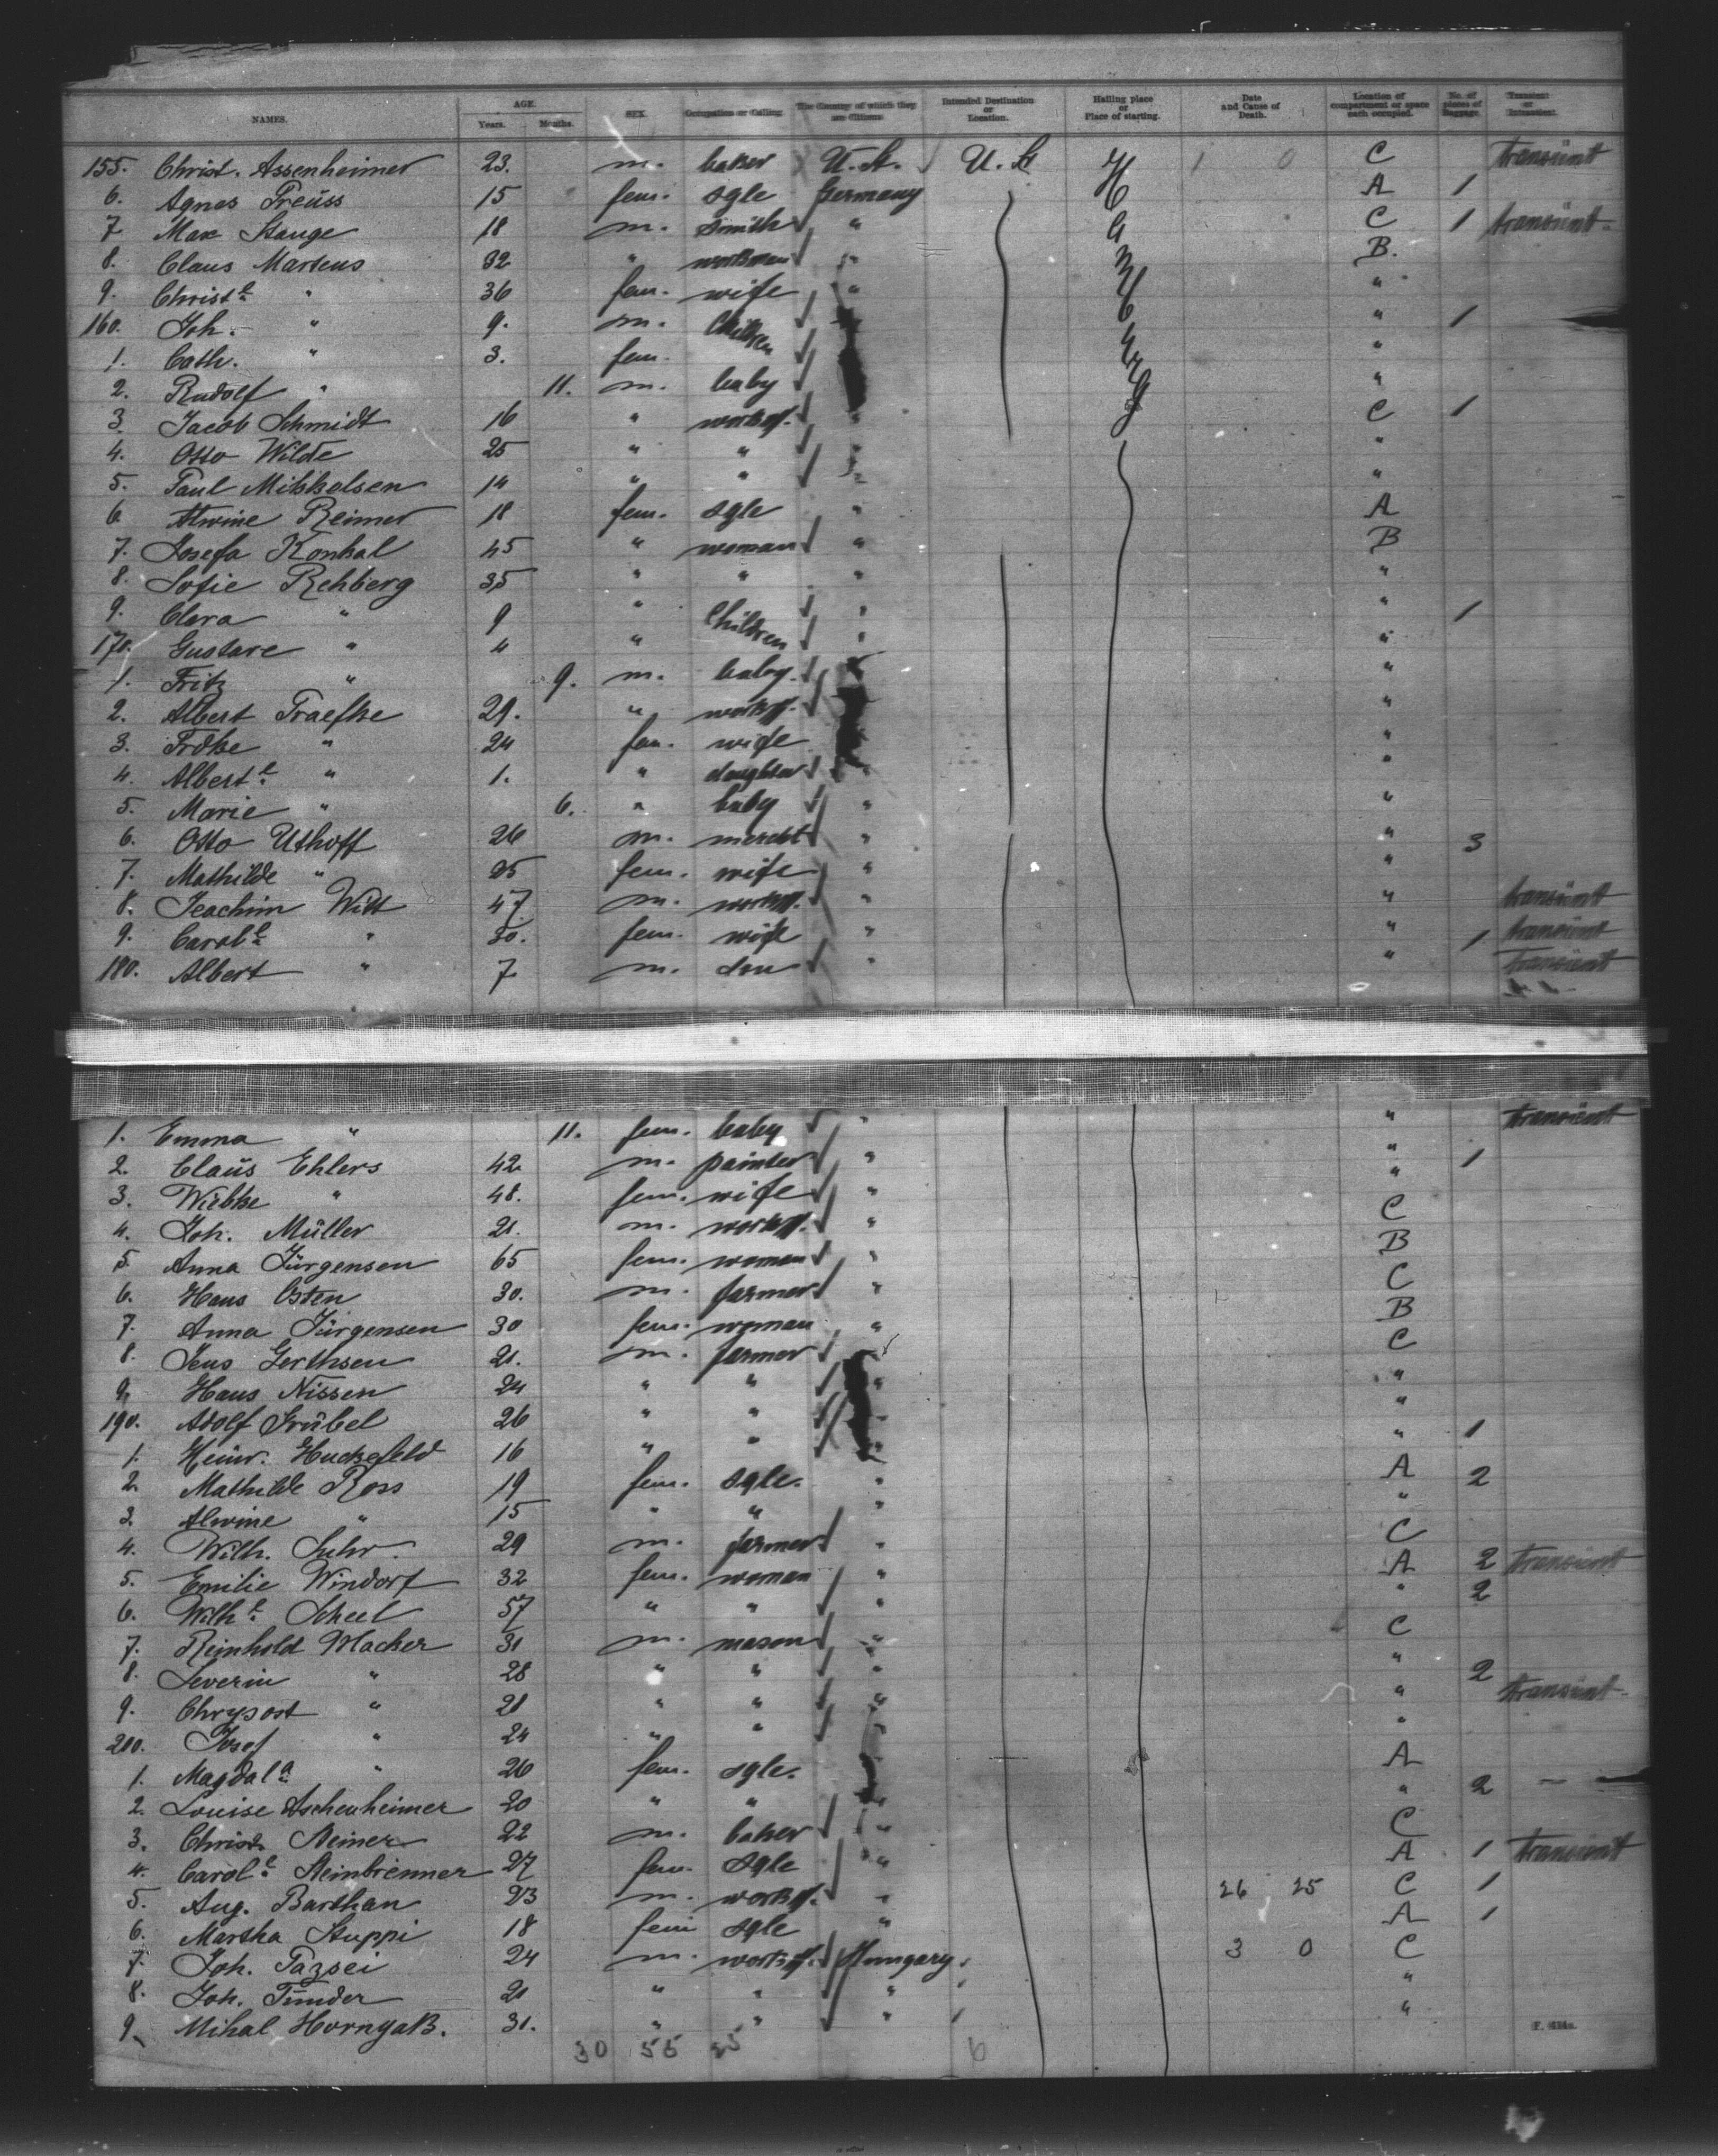 NAMES. AGE. Years. Months. SEX. Occupation or Calling. The Country of which they are Citizens. Intended Destination or Location. Hailing place or Place of starting. Date and Cause of Death. Location of compartment or space each occupied. No. of pieces of Baggage. Transient or Intransient.
155. Christ. Assenheimer 23. m. baker U. St. U. St Hamburg 1 0 C transiint
6. Agnes Preüss 15 fem. sgle Germany A 1
7 Max Stange 18 m. smith " C 1 transiint
8. Claus Martens 32 " workman " B.
9. Christe " 36 fem. wife " "
160. Joh. " 9. m. Children " 1
1. Cath. " 3. fem. "
2. Rudolf " 11. m. baby "
3. Jacob Schmidt 16 " " C 1
4. Otto Wilde 25 " " "
5. Paul Mikkelsen 14 " " "
6. Alwine Reimer 18 fem. sgle " A
7. Josefa Konkal 45 " woman " B
8. Sofie Rehberg 35 " " " "
9. Clara " 9 " Children " " 1
170. Gustave " 4 " " "
1. Fritz " 9. m. baby "
2. Albert Traefke 29. " "
3. Frdke " 24 fem. wife "
4. Alberte " 1. " daughter " "
5. Marie " 6. " baby " "
6. Otto Uthoff 26 m. mercht " " 3
7. Mathilde " 25 fem. wife " "
8. Joachim Witt 47 m. " " transiint
9. Carole " 30. fem. wife " " 1 transiint
180. Albert " 7 m. son " " transiint
1. Emma " 11. fem. baby " " transiint
2. Claüs Ehlers 42 m. painter " " 1
3. Wiebke " 48. fem. wife " "
4. Joh. Müller 21. m. " C
5. Anna Jürgensen 65 fem. woman " B
6. Hans Osten 30. m. farmer " C
7. Anna Jürgensen 30 fem. woman " B
8. Jens Gerthsen 21. m. farmer C
9. Hans Nissen 24 " " " "
190. Adolf Grübel 26 " " " "
1. Heinr. Huckefeld 16 " " " " 1
2. Mathilde Ross 19 fem. sgle. " A 2
3. Alwine " 15 " " " "
4. Wilh. Suhr. 29 m. farmer " C
5. Emilie Windorf 32 fem. woman " A 2 transiint
6. Wilhe Scheel 57 " " " " 2
7. Reinhold Macher 31 m. mason " C
8. Severin " 28 " " " " 2
9. Chrysost " 21 " " " " transiint
200. Josef " 24 " " "
1. Magdala " 26 fem. sgle. A
2. Louise Aschenheimer 20 " " " " 2
3. Christ Steiner 22 m. baker " C
4. Carole Steinbrenner 27 fem. sgle " A 1 transiint
5. Aug. Barthan 23 m. " 26 25 C 1
6. Martha Stuppi 18 fem sgle " A 1
7. Joh. Pazsei 24 m. Hungary. 3 0 C
8. Joh. Tünder 21 " " " "
9. Mihal Hornyak. 31. " " " "
30 55 25 6